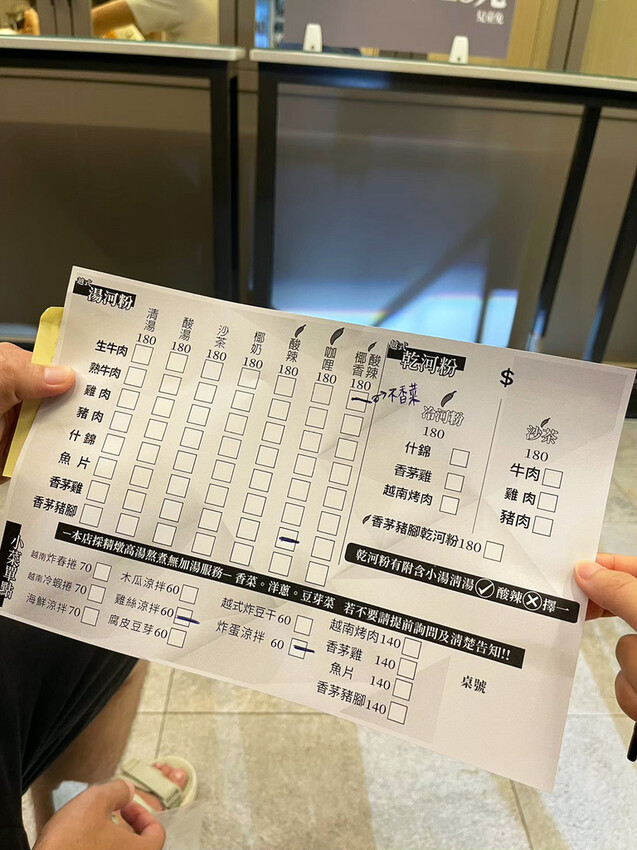 兒童免
越式
湯河粉
清湯 酸湯 沙茶 椰奶 酸辣 咖哩 椰香酸辣
180 180 180 180 180 180 180
生牛肉
熟牛肉
雞肉
豬肉
什錦
魚片
香茅雞
香茅豬腳
不香菜
越式
乾河粉
$
冷河粉
180
什錦
香茅雞
越南烤肉
沙茶
180
牛肉
雞肉
豬肉
香茅豬腳乾河粉180
乾河粉有附含小湯清湯 酸辣 擇一
一本店採精燉高湯熬煮無加湯服務一香菜。洋蔥。豆芽菜 若不要請提前詢問及清楚告知!!
小菜單點
越南炸春捲 70
越南冷蝦捲 70
海鮮涼拌70
木瓜涼拌60
雞絲涼拌60
腐皮豆芽60
越式炸豆干60
炸蛋涼拌 60
越南烤肉140
香茅雞 140
魚片 140
香茅豬腳140
桌號